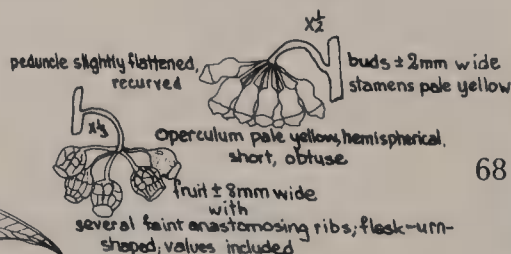 x½
peduncle slightly flattened,
recurved
buds ± 2mm wide
stamens pale yellow
operculum pale yellow, hemispherical,
short, obtuse
68
fruit ± 8mm wide
with
several faint anastomosing ribs; flask-urn-
shaped; valves included